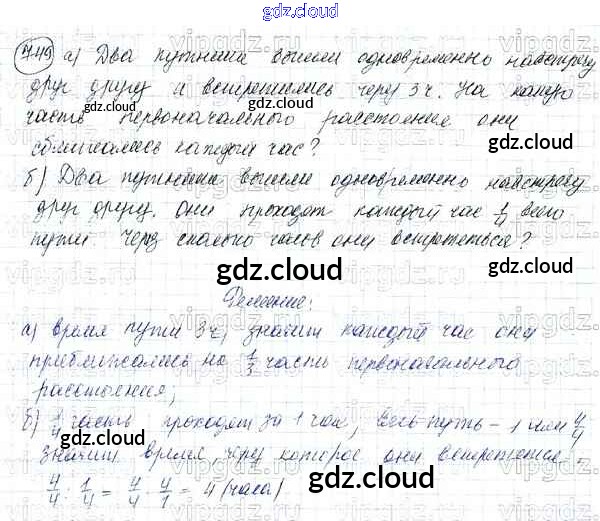 gdz.cloud
749 а) Два путника вышли одновременно навстречу
друг другу и встретились через 3ч. На какую
часть первоначального расстояния они
сближались каждый час?
б) Два путника вышли одновременно навстречу
друг другу. Они проходят каждый час 1/4 всего
пути. Через сколько часов они встретятся?
gdz.cloud
Решение:
а) время пути 3ч, значит каждый час они
приближались на 1/3 часть первоначального
расстояния;
б) 1/4 часть проходят за 1 час, весь путь – 1 или 4/4
значит время, через которое они встретятся.
4/4 : 1/4 = 4/4 · 4/1 = 4 (часа)
gdz.cloud